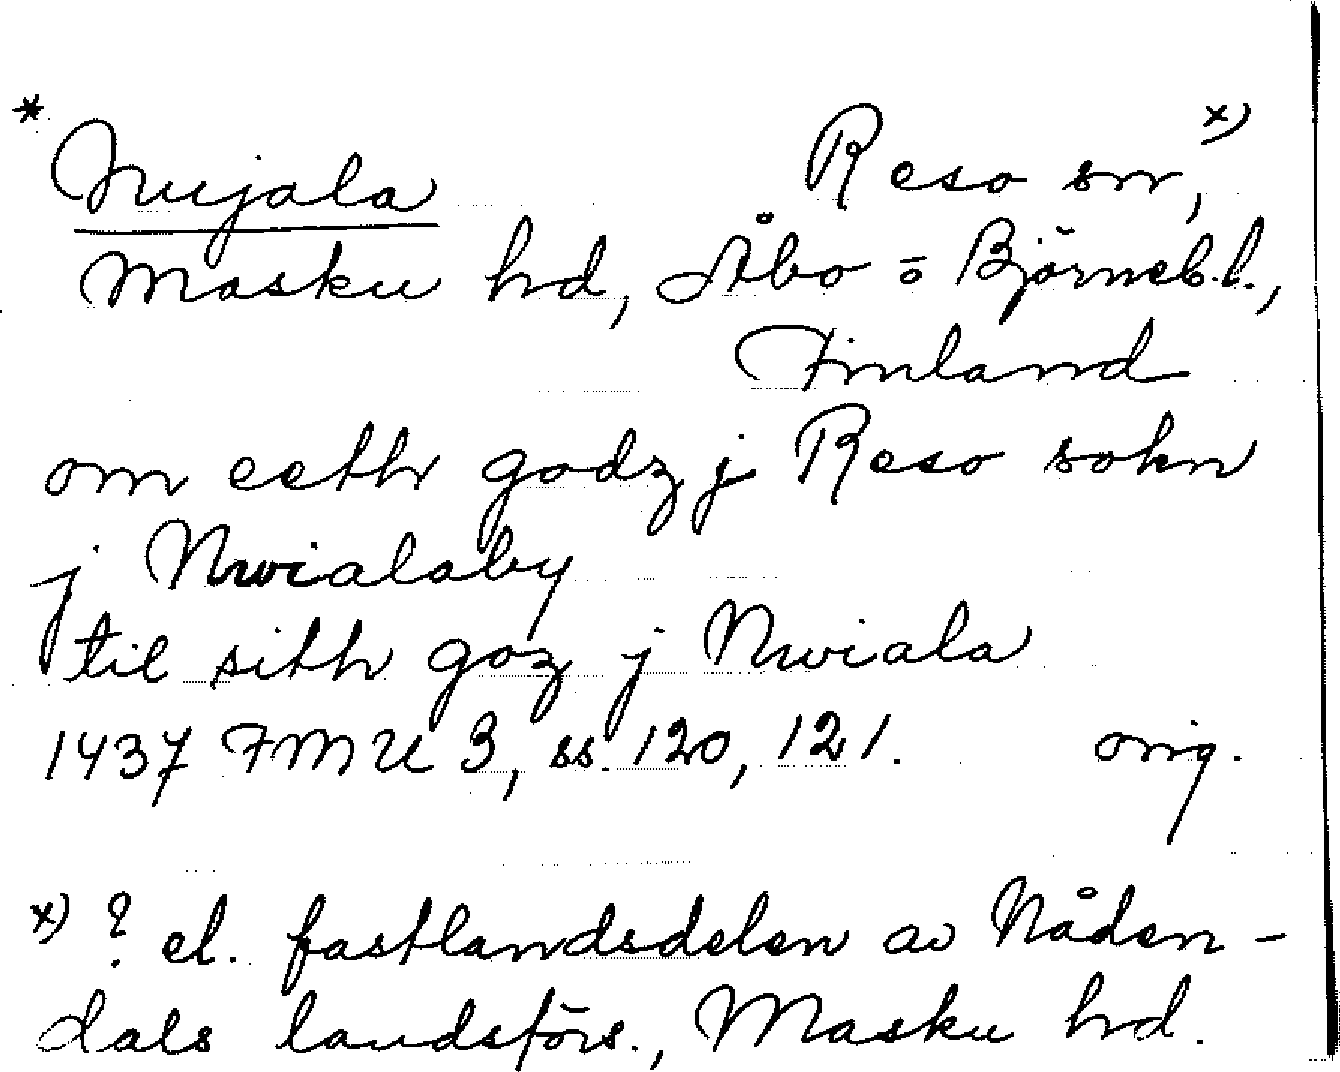 * Nujala Reso sn, x)
Masku hd, Åbo o Björneb.l.,
Finland
om eeth godz j Reso sokn
j Nwialaby
til sith goz j Nwiala
1437 FMU 3, ss. 120, 121. orig.
x) ? el. fastlandsdelen av Nåden-
dals landsförs., Masku hd.